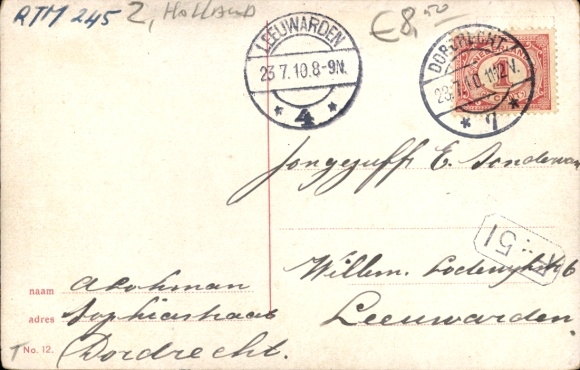 RTM 245
Z, HOLLAND
€8,50
LEEUWARDEN
23.7.10.8-9N.
4
DORDRECHT.
23.7.10.11-12V.
7
1
Jongejuffr E.
51
Willem Lodewijkstr 6
Leeuwarden.
naam
adres Sophiastraat
No. 12. Dordrecht.